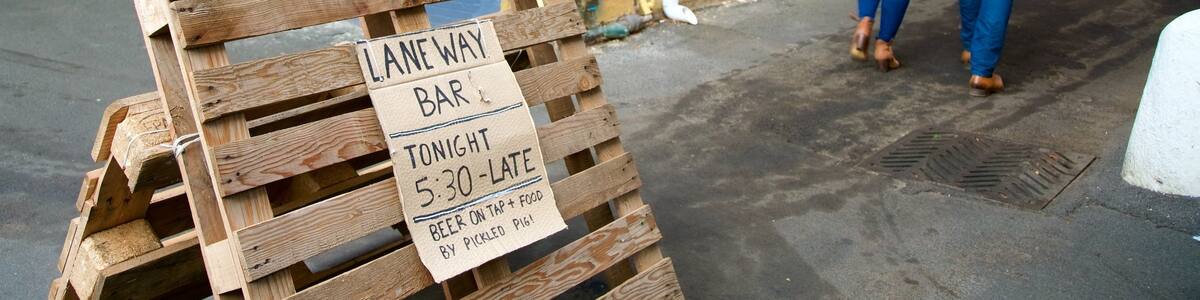 LANEWAY
BAR!
TONIGHT
5:30-LATE
BEER ON TAP + FOOD
BY PICKLED PIG!